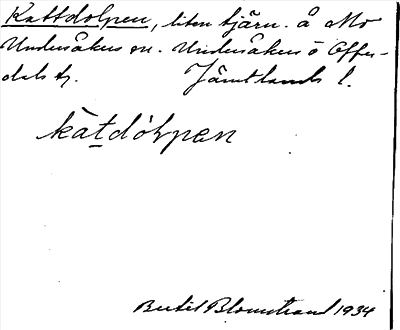 Kattdolpen, liten tjärn. å Mo
Undersåkers sn. Undersåkers o Offer-
dals tg. Jämtlands l.
kàtdólpen
Bertil Blomstrand 1934